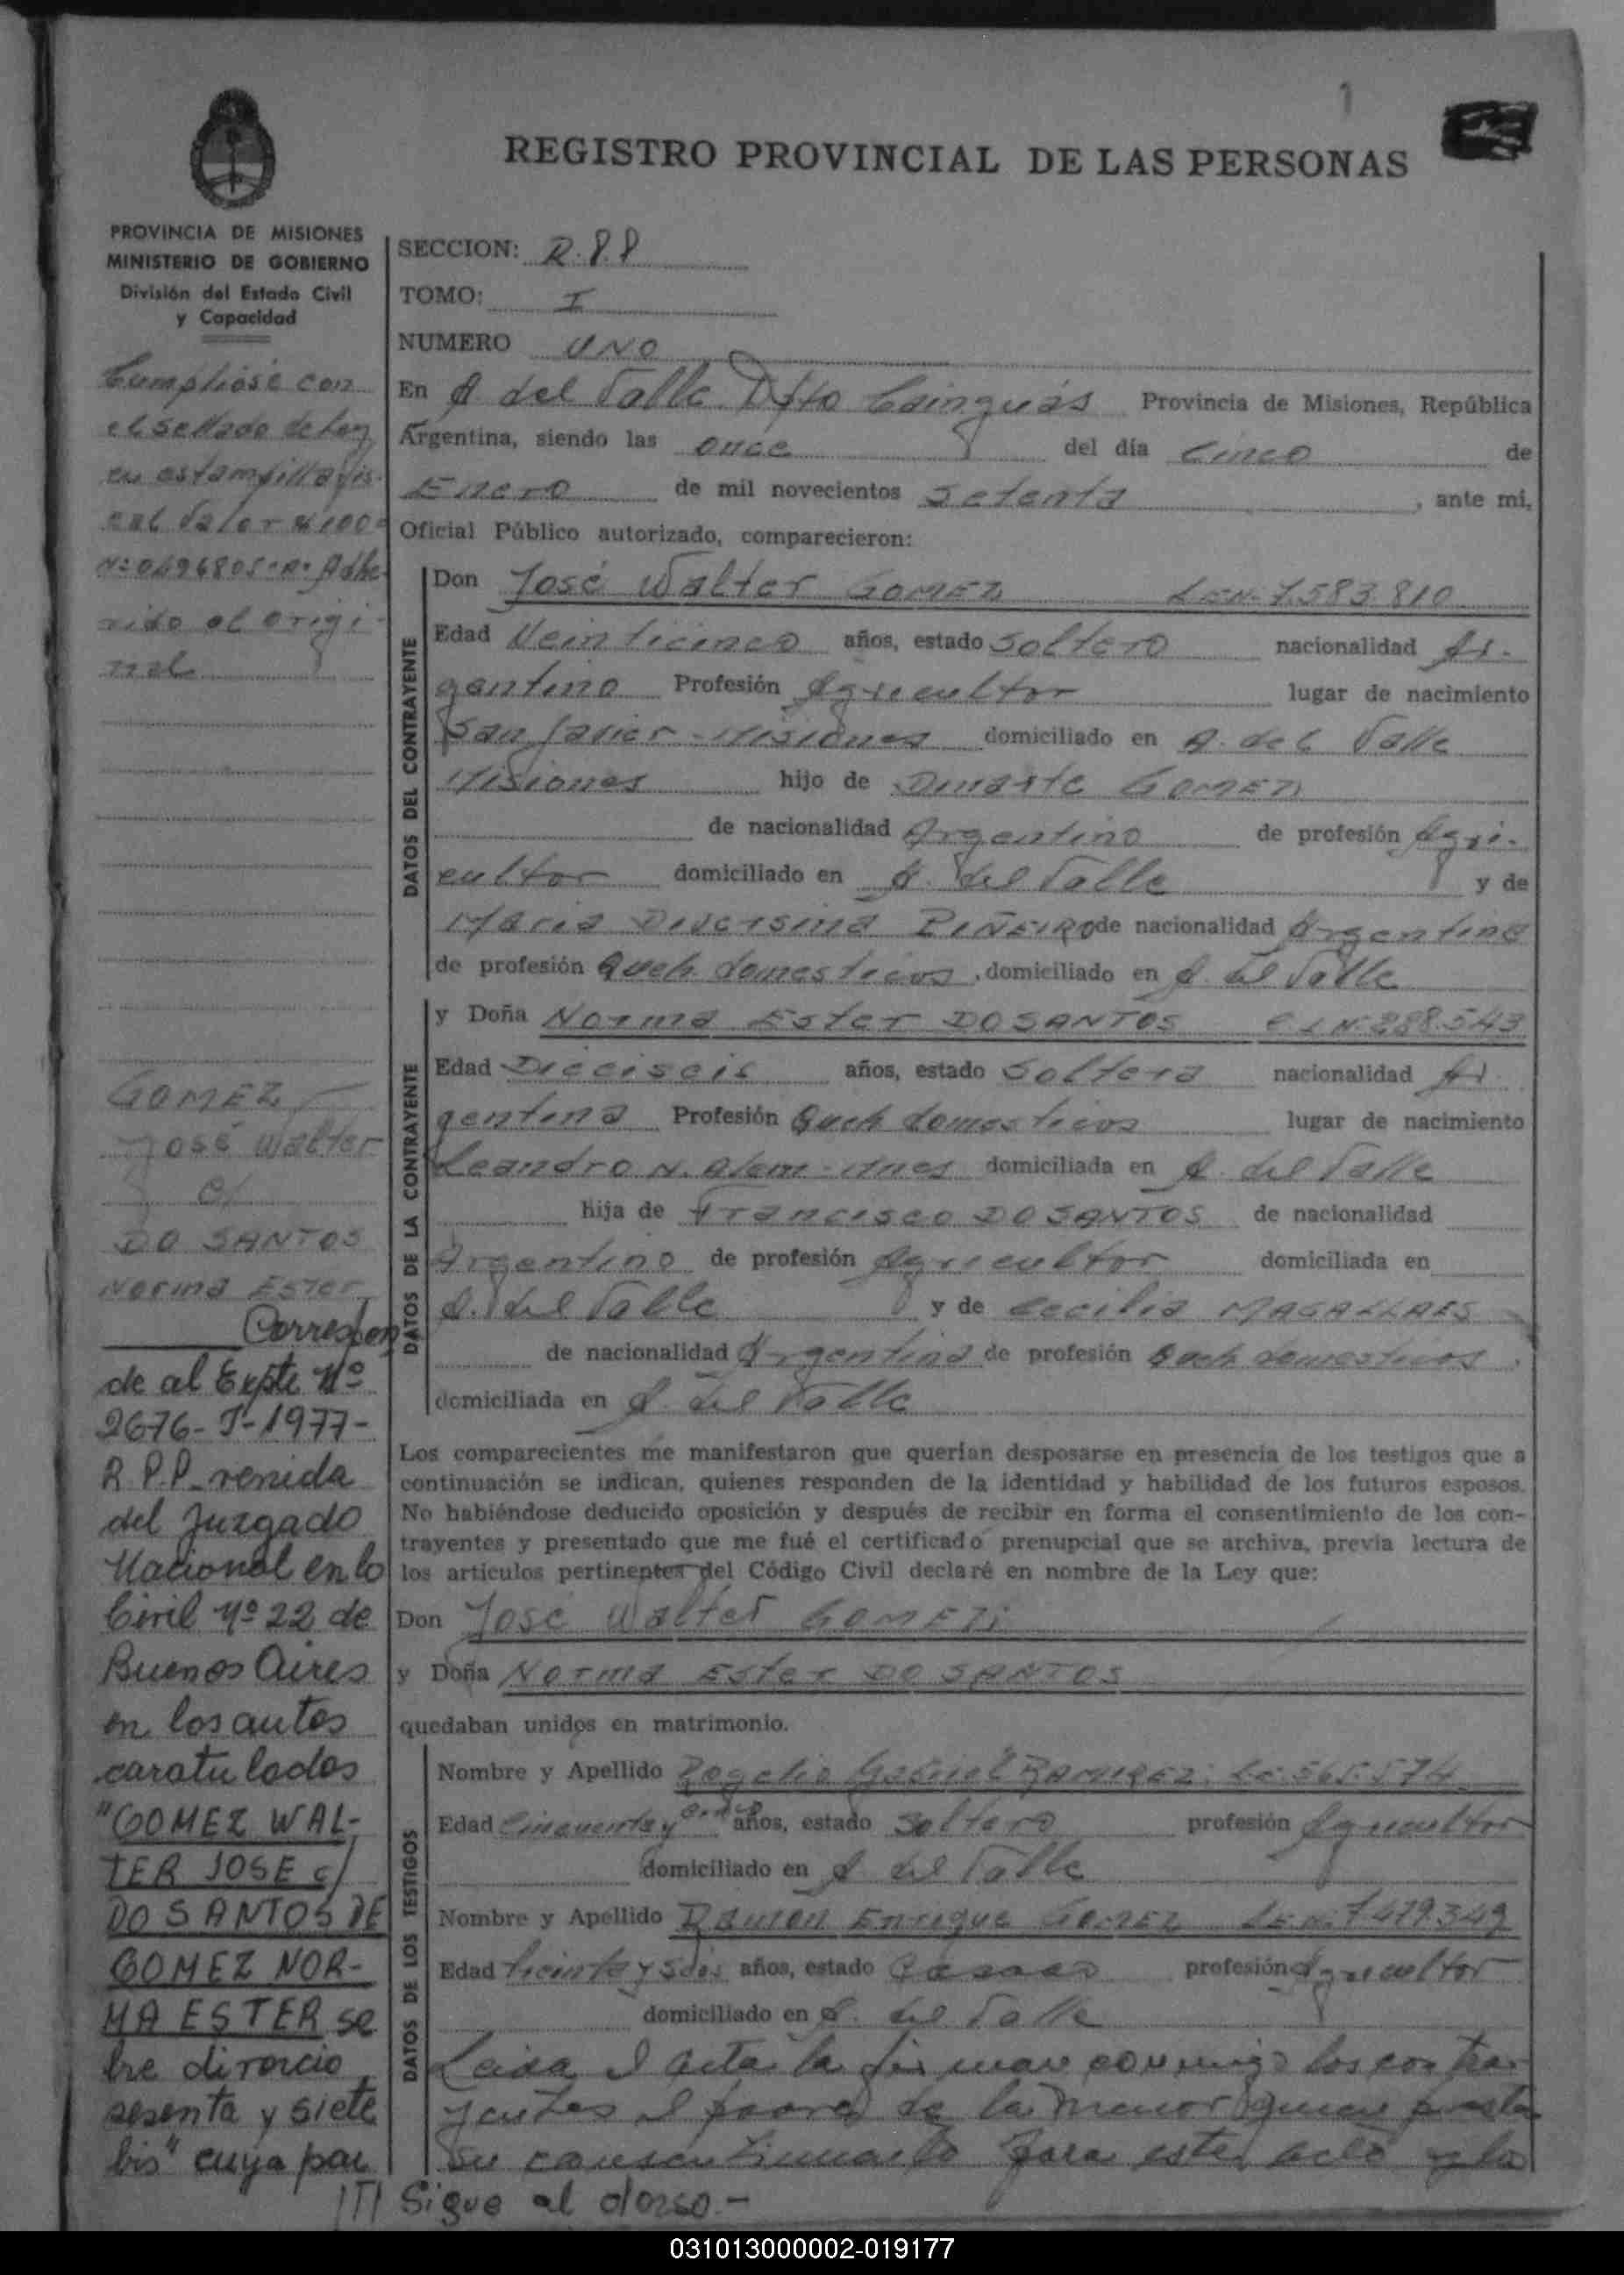 1
REGISTRO PROVINCIAL DE LAS PERSONAS
PROVINCIA DE MISIONES
MINISTERIO DE GOBIERNO
División del Estado Civil
y Capacidad
Cumplióse con
el sellado de ley
en estampilla fis-
cal valor $ 100=
Nº 0696805-A- Adhe
rido al origi-
nal
GOMEZ
José Walter
c/
DO SANTOS
Norma Ester
Correspon
de al Expte Nº
2676-J-1977-
R.P.P. venida
del Juzgado
Nacional en lo
Civil Nº 22 de
Buenos Aires
en los autos
caratulados
"GOMEZ WAL-
TER JOSE c/
DO SANTOS DE
GOMEZ NOR-
MA ESTER so
bre divorcio
sesenta y siete
bis" cuya par
SECCION: R.P.P
TOMO: I
NUMERO UNO
En A. del Valle Dpto Cainguás Provincia de Misiones, República
Argentina, siendo las once del día cinco de
Enero de mil novecientos setenta, ante mi,
Oficial Público autorizado, comparecieron:
DATOS DEL CONTRAYENTE
Don José Walter GOMEZ L.E.N. 7.583.810
Edad Veinticinco años, estado soltero nacionalidad Ar-
gentino Profesión Agricultor lugar de nacimiento
San Javier - Misiones domiciliado en A. del Valle
Misiones hijo de Duarte GOMEZ
de nacionalidad Argentino de profesión Agri-
cultor domiciliado en A. del Valle y de
Maria Diversina PIÑEIRO de nacionalidad Argentina
de profesión Queh. domesticos, domiciliado en A. del Valle
DATOS DE LA CONTRAYENTE
y Doña Norma Ester DO SANTOS C.I.N. 288.543
Edad Dieciseis años, estado Soltera nacionalidad Ar
gentina Profesión Queh domesticos lugar de nacimiento
Leandro N. Alem - Mnes domiciliada en A. del Valle
hija de Francisco DO SANTOS de nacionalidad
Argentino de profesión Agricultor domiciliada en
A. del Valle y de Cecilia MAGALLAES
de nacionalidad Argentina de profesión Queh domesticos,
domiciliada en A. del Valle
Los comparecientes me manifestaron que querían desposarse en presencia de los testigos que a
continuación se indican, quienes responden de la identidad y habilidad de los futuros esposos.
No habiéndose deducido oposición y después de recibir en forma el consentimiento de los con-
trayentes y presentado que me fué el certificado prenupcial que se archiva, previa lectura de
los artículos pertinentes del Código Civil declaré en nombre de la Ley que:
Don José Walter GOMEZ
y Doña Norma Ester DO SANTOS
quedaban unidos en matrimonio.
DATOS DE LOS TESTIGOS
Nombre y Apellido Rogelio Gabriel RAMIREZ. L.E. 565.574
Edad Cincuenta y años, estado Soltero profesión Agricultor
domiciliado en A. del Valle
Nombre y Apellido Ramon Enrique GOMEZ L.E.N. 7.479.349
Edad Treinta y Seis años, estado Casado profesión Agricultor
domiciliado en A. del Valle
Leida el acta la firman conmigo los contra
yentes el padre de la menor quien presta
su consentimiento para este acto y los
/// Sigue al dorso.-
031013000002-019177